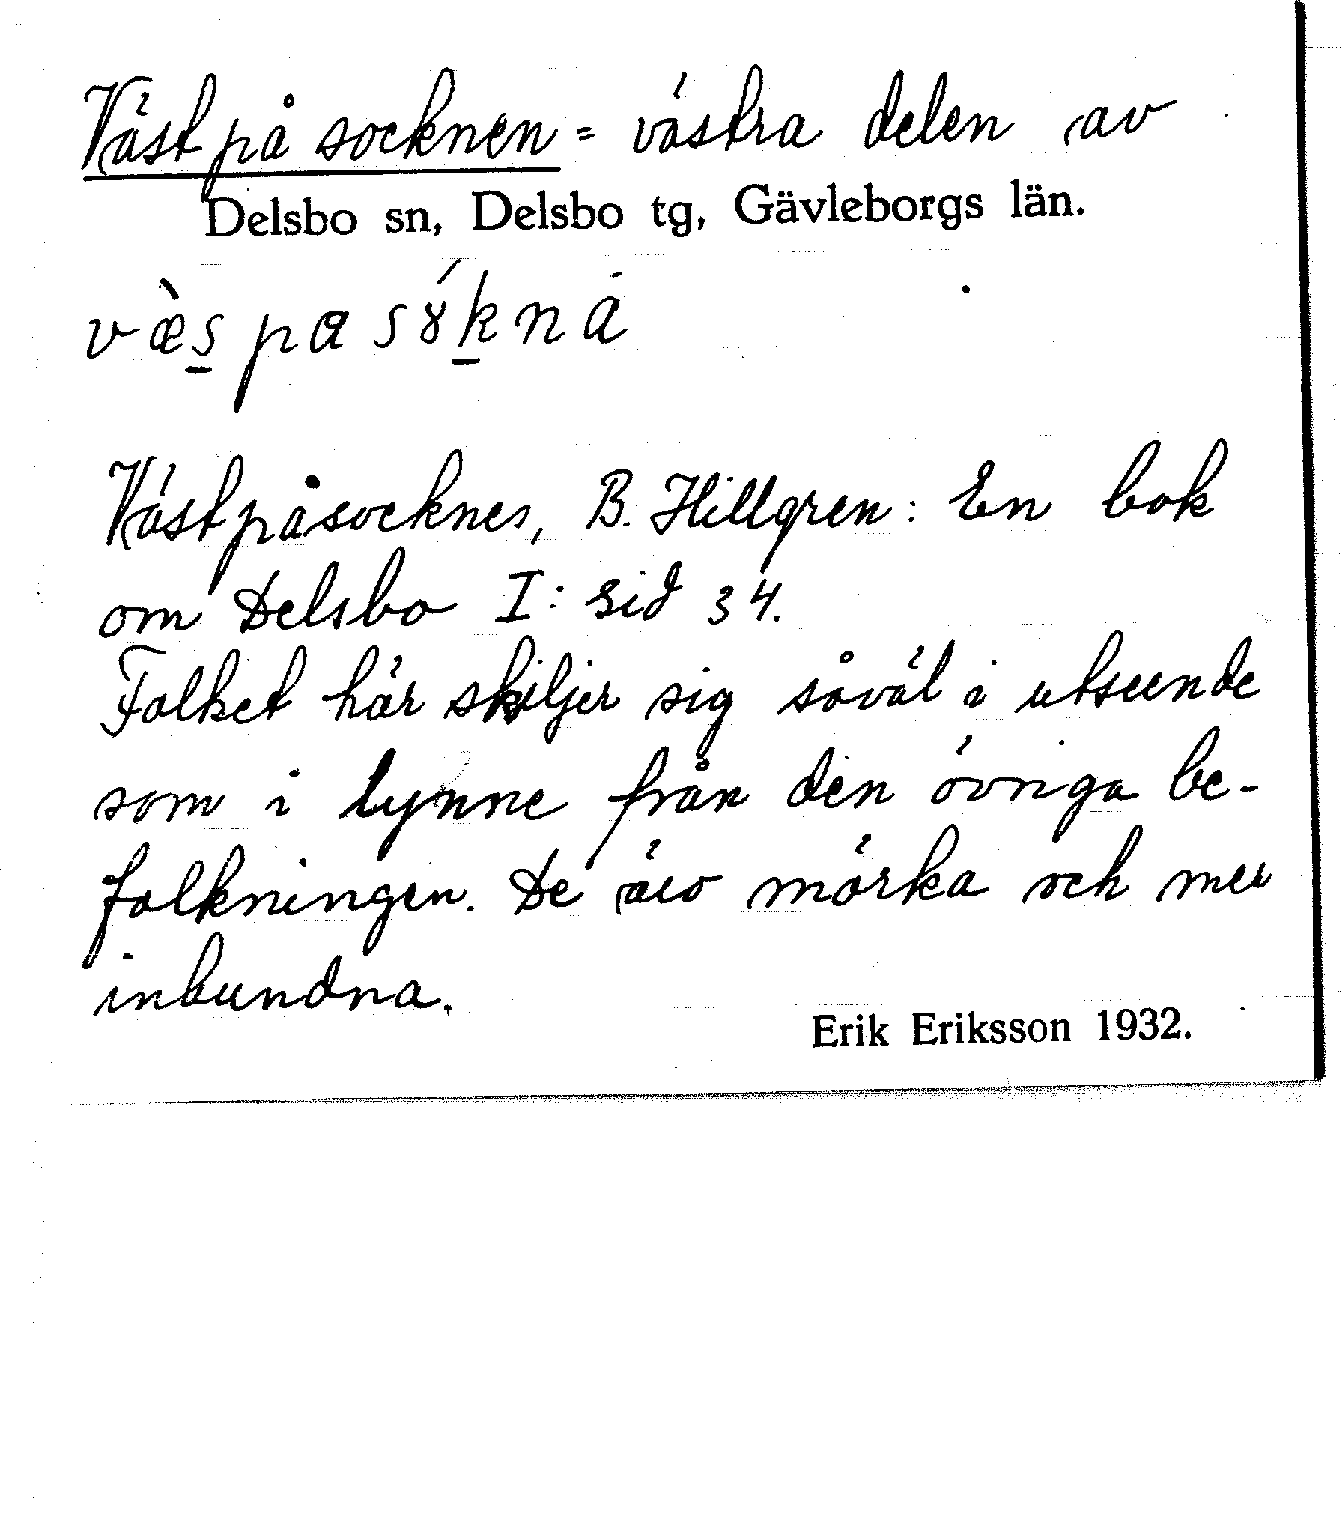 Väst på socknen = västra delen av
Delsbo sn, Delsbo tg, Gävleborgs län.
væ̀s̲ pa sɤ́k̲nȧ
Västpåsocknes, B. Hillgren: En bok
om Delsbo I: sid 34.
Folket här skiljer sig såväl i utseende
som i lynne från den övriga be-
folkningen. De äro mörka och mer
inbundna.
Erik Eriksson 1932.